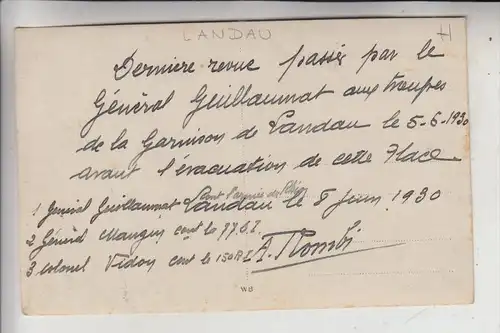 LANDAU H
Dernière revue passée par le
Général Guillaumat aux troupes
de la Garnison de Landau le 5-6-1930
avant l'évacuation de cette Place.
Landau le 8 Juin 1930
1 Général Guillaumat Cont l'armée du Rhin
2 Général Mangin cont la
3 colonel Vidon cont le 150 R.I.
WB